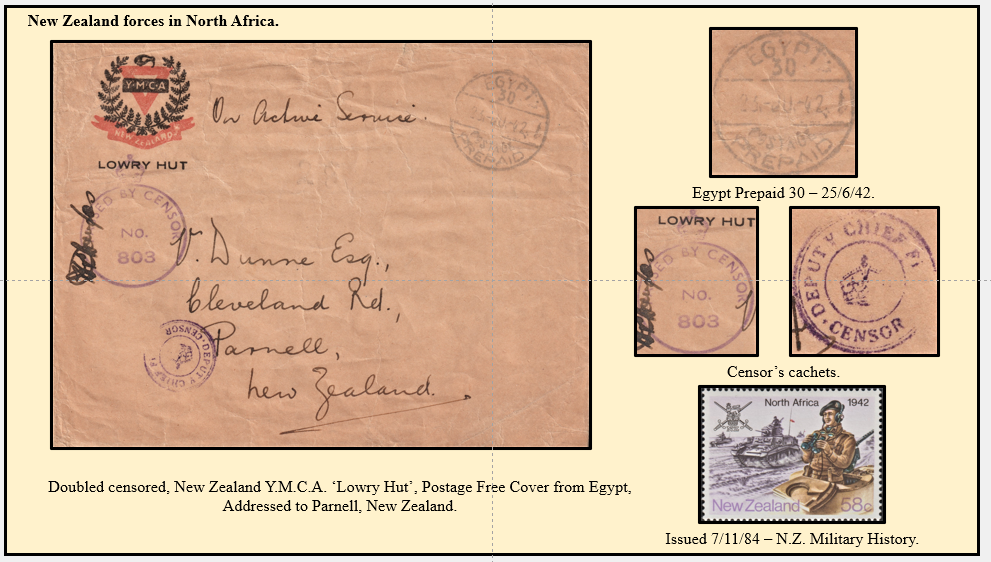 New Zealand forces in North Africa.
Y·M·C·A
NEW ZEALAND
LOWRY HUT
On Active Service.
EGYPT
30
PREPAID
ED BY CENSOR
No.
803
Dunne Esq.,
Cleveland Rd.,
Parnell,
New Zealand.
DEPUTY CHIEF
CENSOR
Doubled censored, New Zealand Y.M.C.A. ‘Lowry Hut’, Postage Free Cover from Egypt,
Addressed to Parnell, New Zealand.
EGYPT
30
PREPAID
Egypt Prepaid 30 – 25/6/42.
LOWRY HUT
ED BY CENSOR
No.
803
DEPUTY CHIEF FI
CENSOR
Censor’s cachets.
North Africa 1942
New Zealand 58c
Issued 7/11/84 – N.Z. Military History.